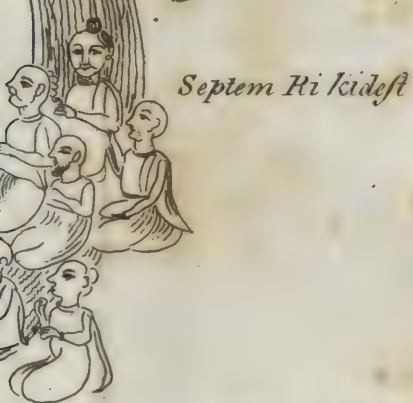 Septem Ri kideſt